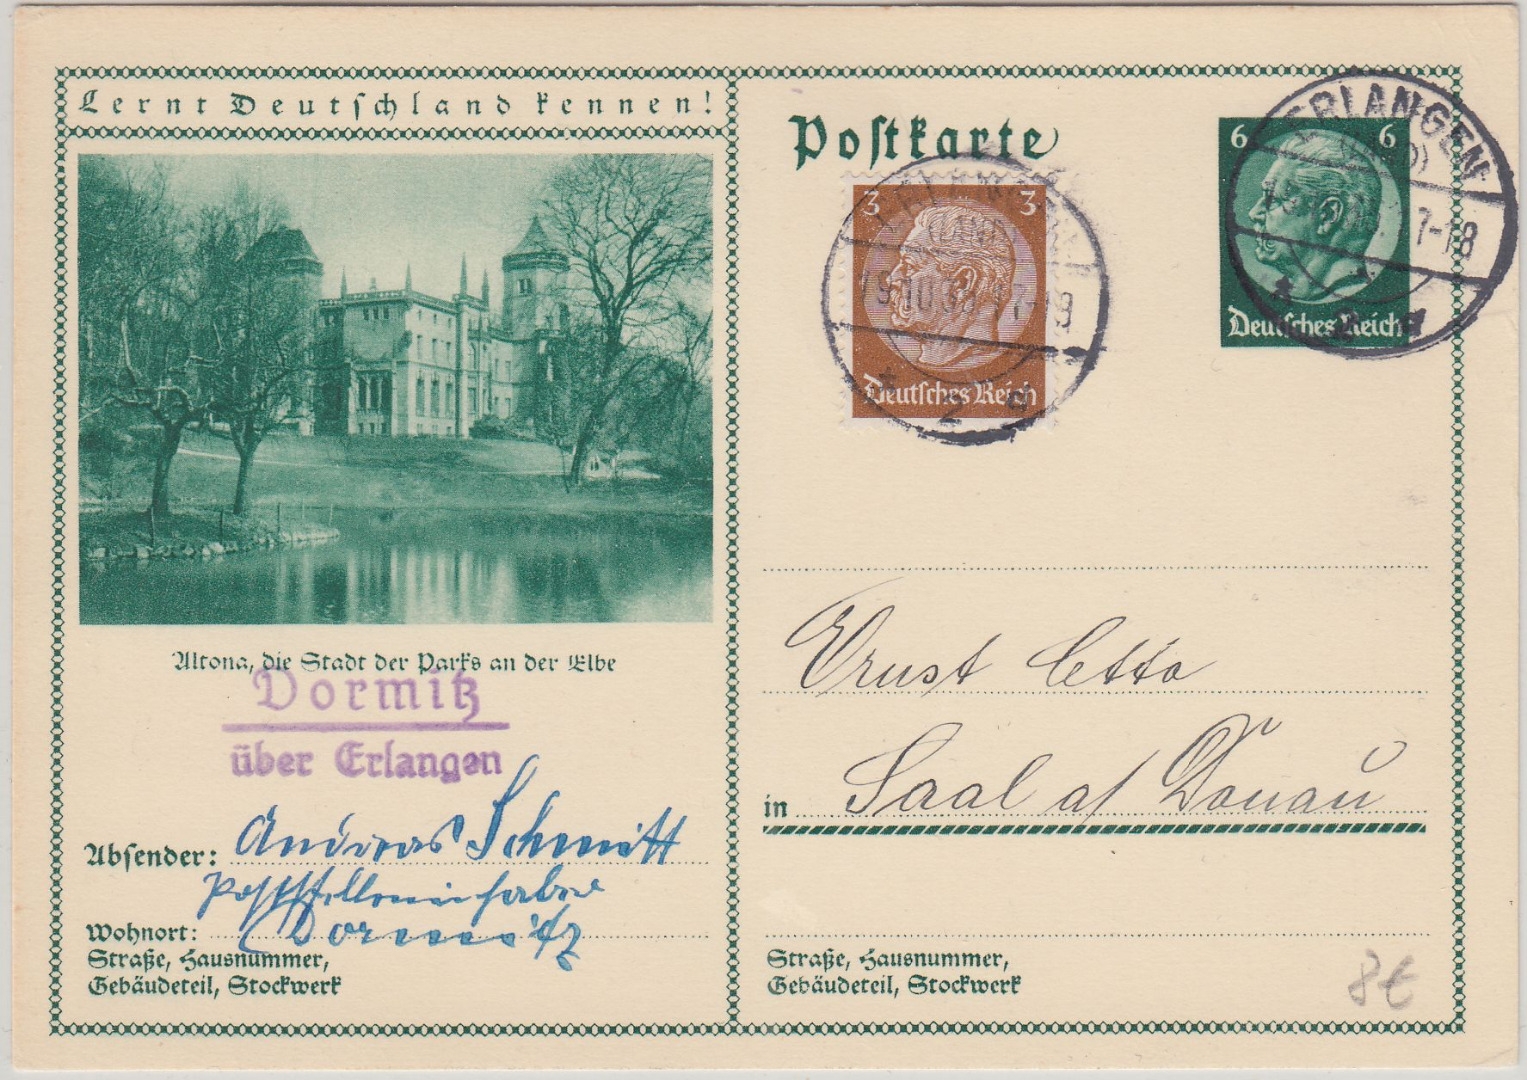 Lernt Deutschland kennen!
Altona, die Stadt der Parks an der Elbe
Dormitz
über Erlangen
Absender: Andreas Schmitt
Poststelleninhaber
Wohnort: Dormitz
Straße, Hausnummer,
Gebäudeteil, Stockwerk
Postkarte
3 3
ERLANGEN
19.10.38.17-19
2 d
Deutsches Reich
6 6
ERLANGEN
7-18
Deutsches Reich
Ernst
in Saal a/ Donau
Straße, Hausnummer,
Gebäudeteil, Stockwerk
8€